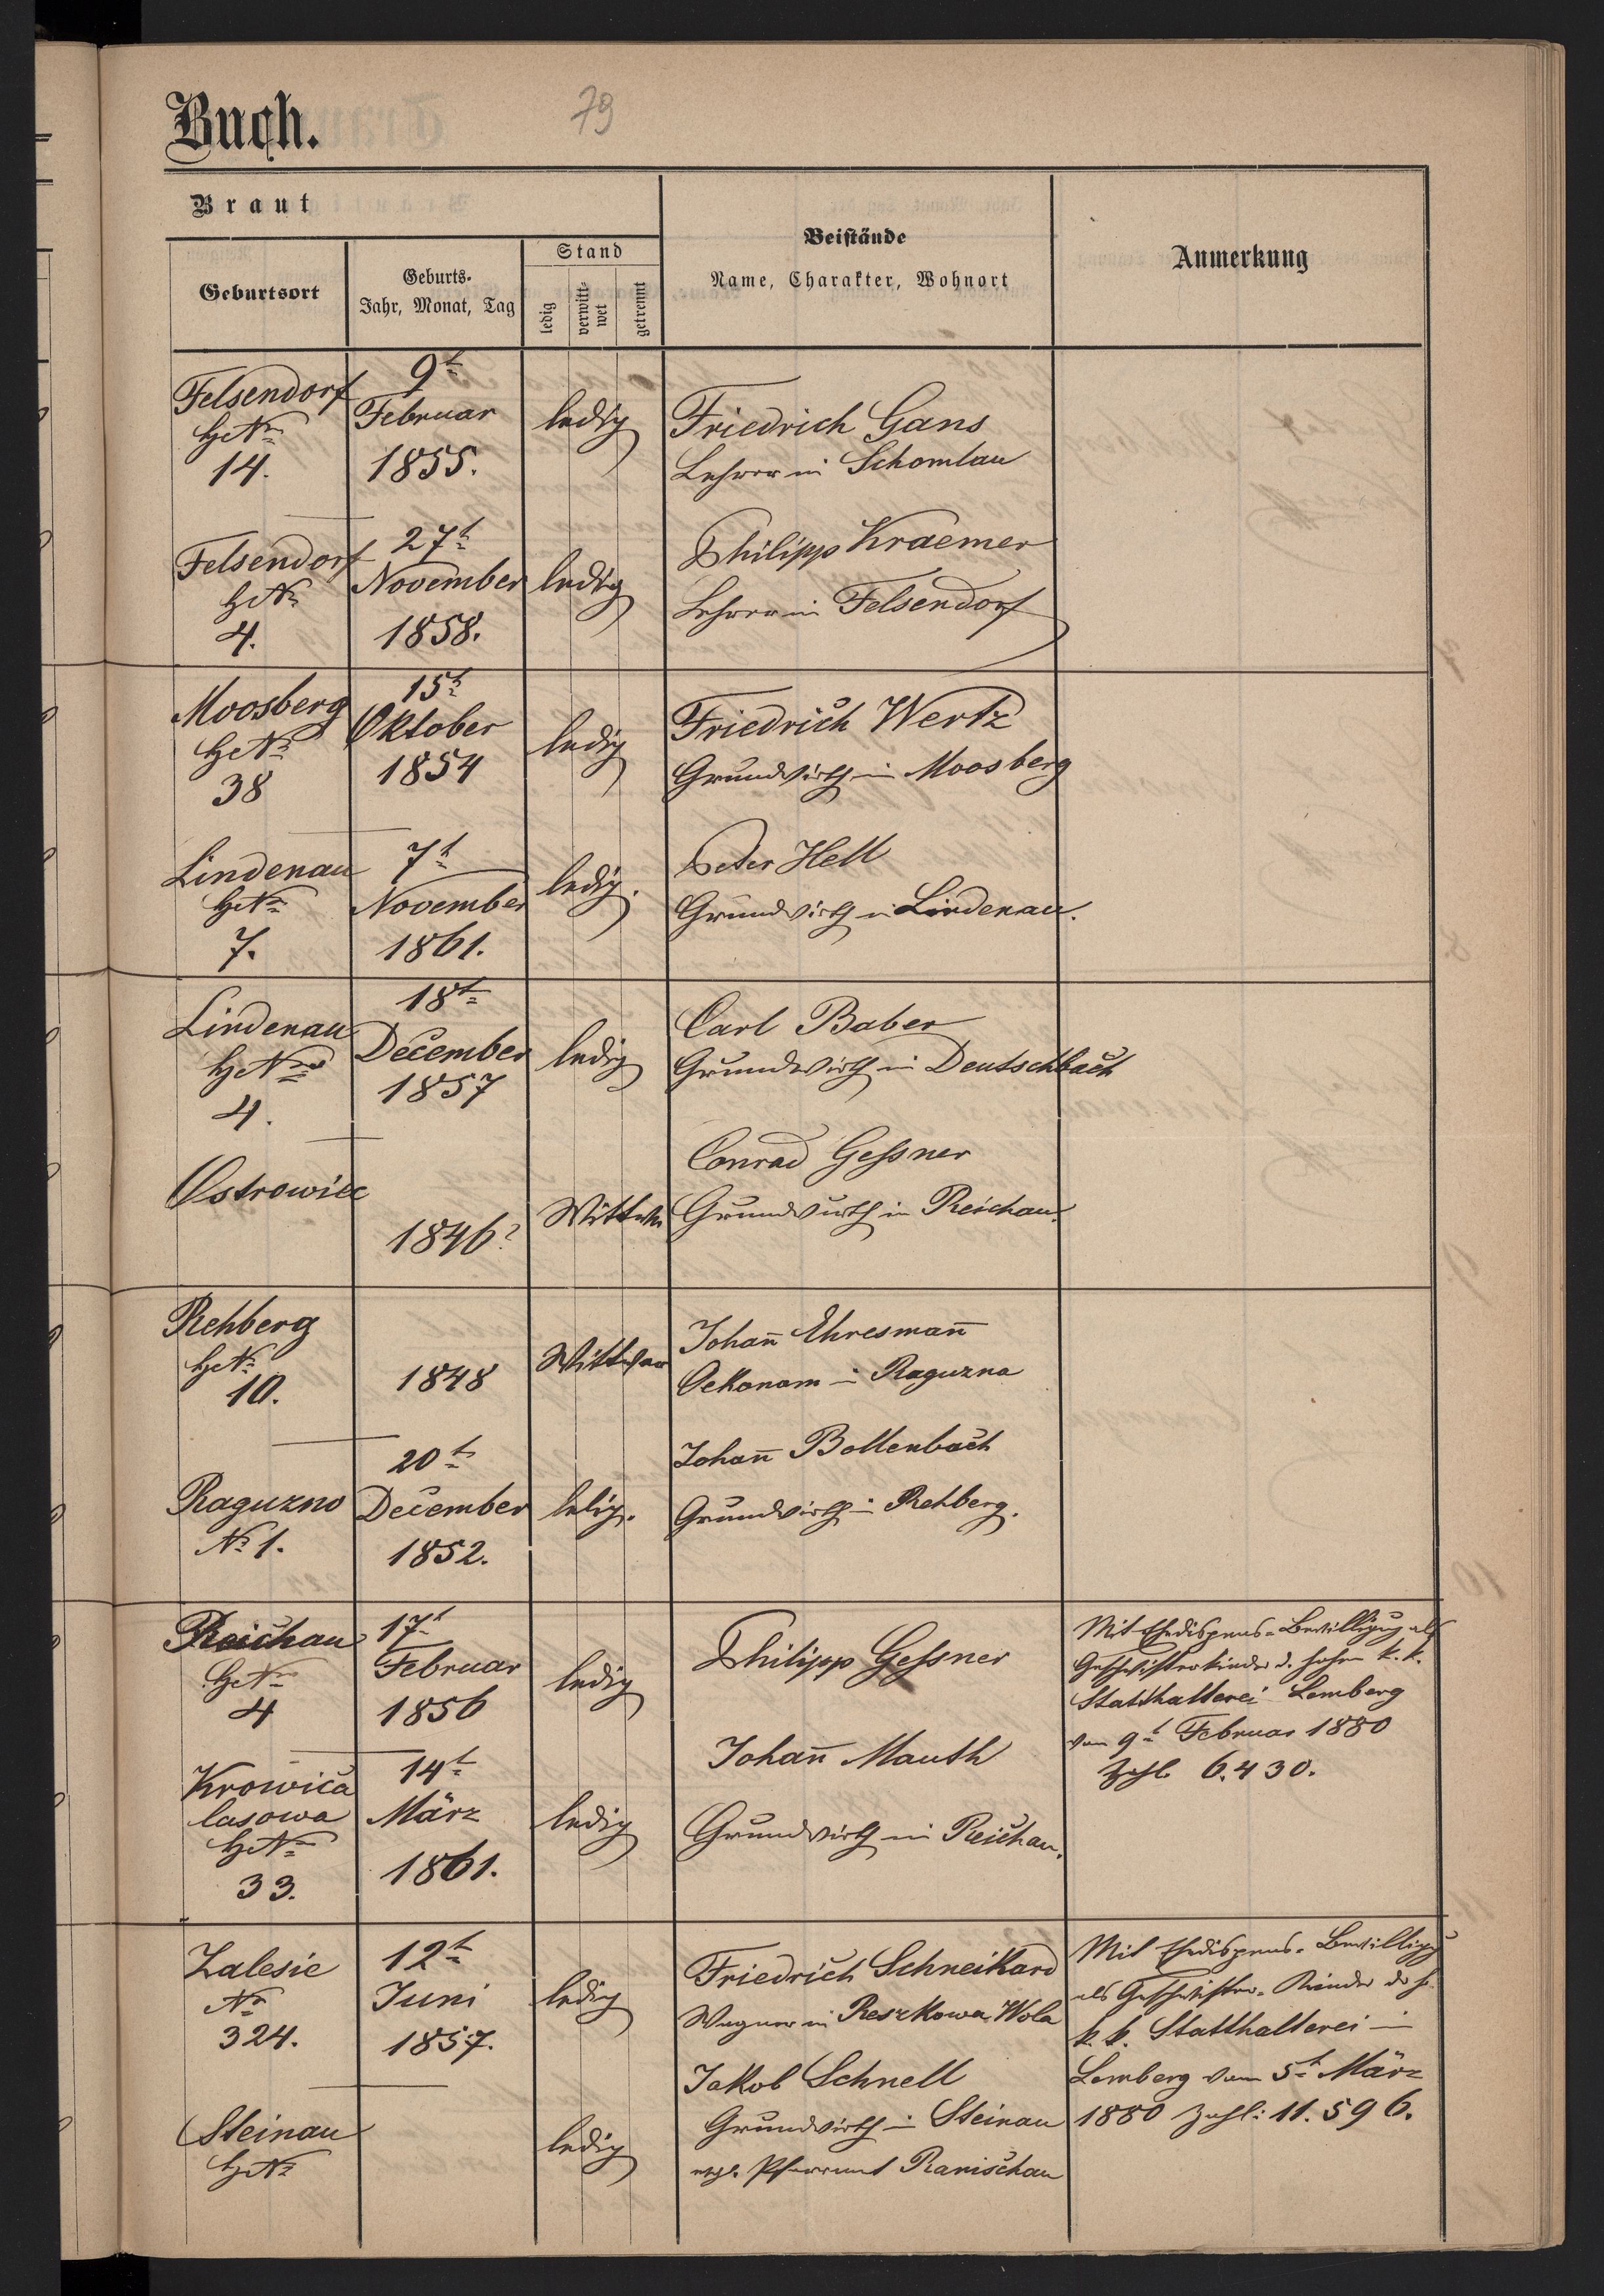 Buch.
79
Braut
Geburtsort
Geburts-
Jahr, Monat, Tag
Stand
ledig
verwitt-
wet
getrennt
Beistände
Name, Charakter, Wohnort
Anmerkung
Felsendorf
HNr
14.
9t
Februar
1855.
ledig
Friedrich Gans
Lehrer in Schomlau
Felsendorf
HNr
4.
27t
November
1858.
ledig
Philipp Kraemer
Lehrer in Felsendorf
Moosberg
HNr
38
15t
Oktober
1854
ledig
Friedrich Wertz
Grundwirth in Moosberg
Lindenau
HNr
7.
7t
November
1861.
ledig.
Peter Hell
Grundwirth in Lindenau.
Lindenau
HNr
4.
18t
December
1857
ledig
Carl Baber
Grundwirth in Deutschbach
Ostrowiec
1846?
Wittwe
Conrad Geßner
Grundwirth in Reichau.
Rehberg
HNr
10.
1848
Wittwe
Johan̄ Ehresman̄
Oekonom in Raguzna
Raguzno
Nr 1.
20t
December
1852.
ledig.
Johan̄ Bollenbach
Grundwirth in Rehberg.
Reichau
HNr
4
17t
Februar
1856
ledig
Philipp Geßner
Mit Ehedispens-Bewilligung als
Geschwisterkinder d. hohen k. k.
Statthalterei Lemberg
vom 9t Februar 1880
Zahl 6.430.
Krowica
lasowa
HNr
33.
14t
März
1861.
ledig
Johan̄ Mauth
Grundwirth in Reichau.
Zalesie
Nr
324.
12t
Juni
1857.
ledig
Friedrich Schneikard
Wagner in Reszkowa Wola
Mit Ehedispens-Bewilligg
als Geschwister-Kinder der h.
k. k. Statthalterei in
Lemberg vom 5t März
1880 Zahl: 11.596.
Steinau
HNr
ledig
Jakob Schnell
Grundwirth in Steinau
Pfarramt Ranischau